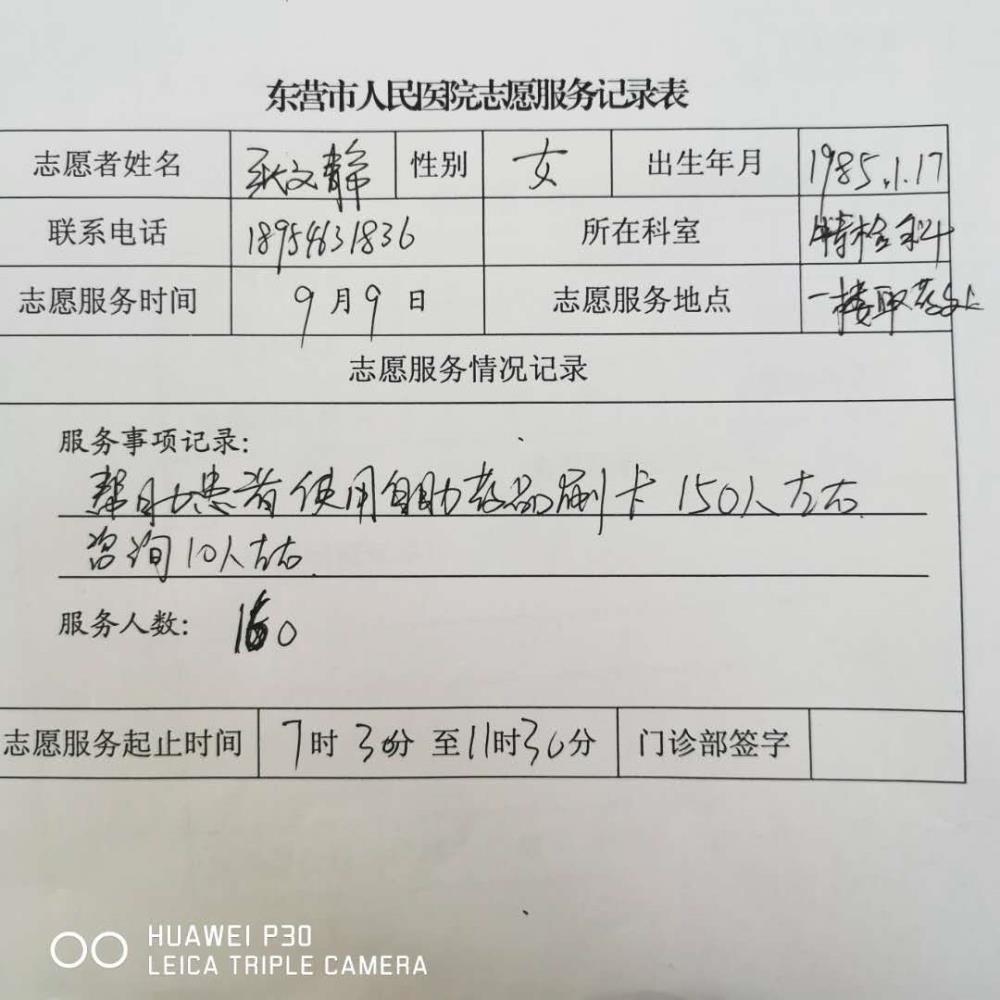 东营市人民医院志愿服务记录表
志愿者姓名 耿文静 性别 女 出生年月 1985.1.17
联系电话 18954631836 所在科室 特检科
志愿服务时间 9月9日 志愿服务地点 一楼取药处
志愿服务情况记录
服务事项记录:
帮助患者使用自助药品刷卡 150人左右
咨询10人左右.
服务人数: 160
志愿服务起止时间 7时30分至11时30分 门诊部签字
HUAWEI P30
LEICA TRIPLE CAMERA